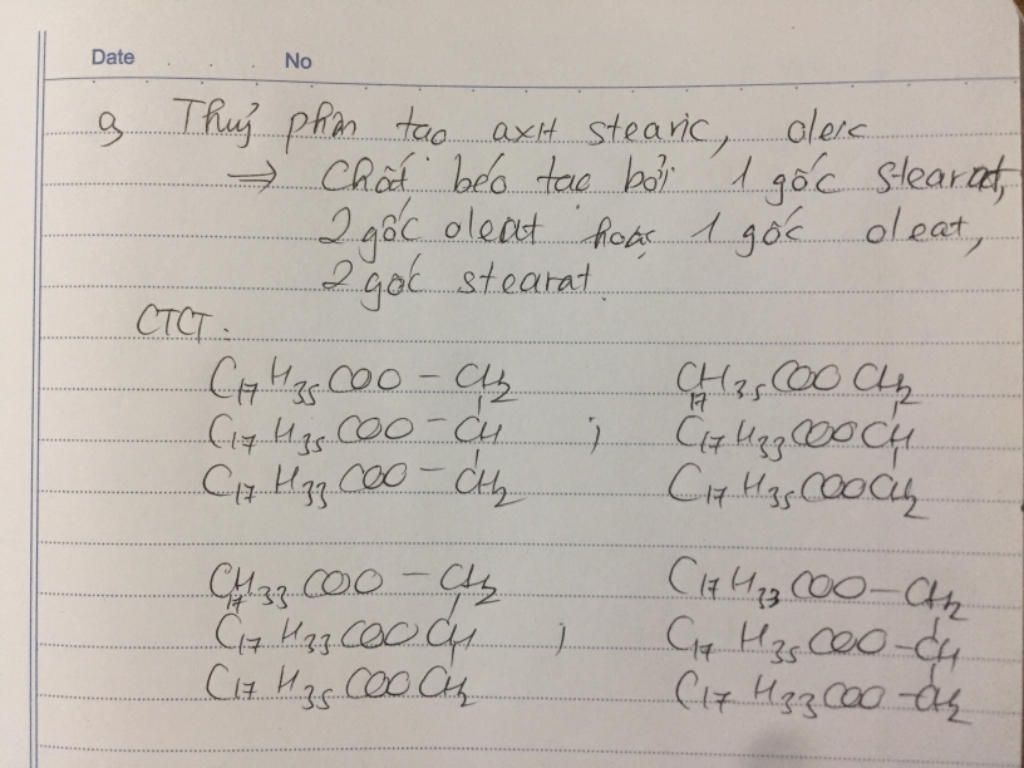 Date No
a, Thuỷ phân tạo axit stearic, oleic
⇒ Chất béo tạo bởi 1 gốc stearat,
2 gốc oleat hoặc 1 gốc oleat,
2 gốc stearat.
CTCT:
C17H35COO - CH2 C17H35COOCH2
C17H35COO - CH ; C17H33COOCH
C17H33COO - CH2 C17H35COOCH2
C17H33COO - CH2 C17H33COO - CH2
C17H33COOCH ; C17H35COO - CH
C17H35COOCH2 C17H33COO - CH2